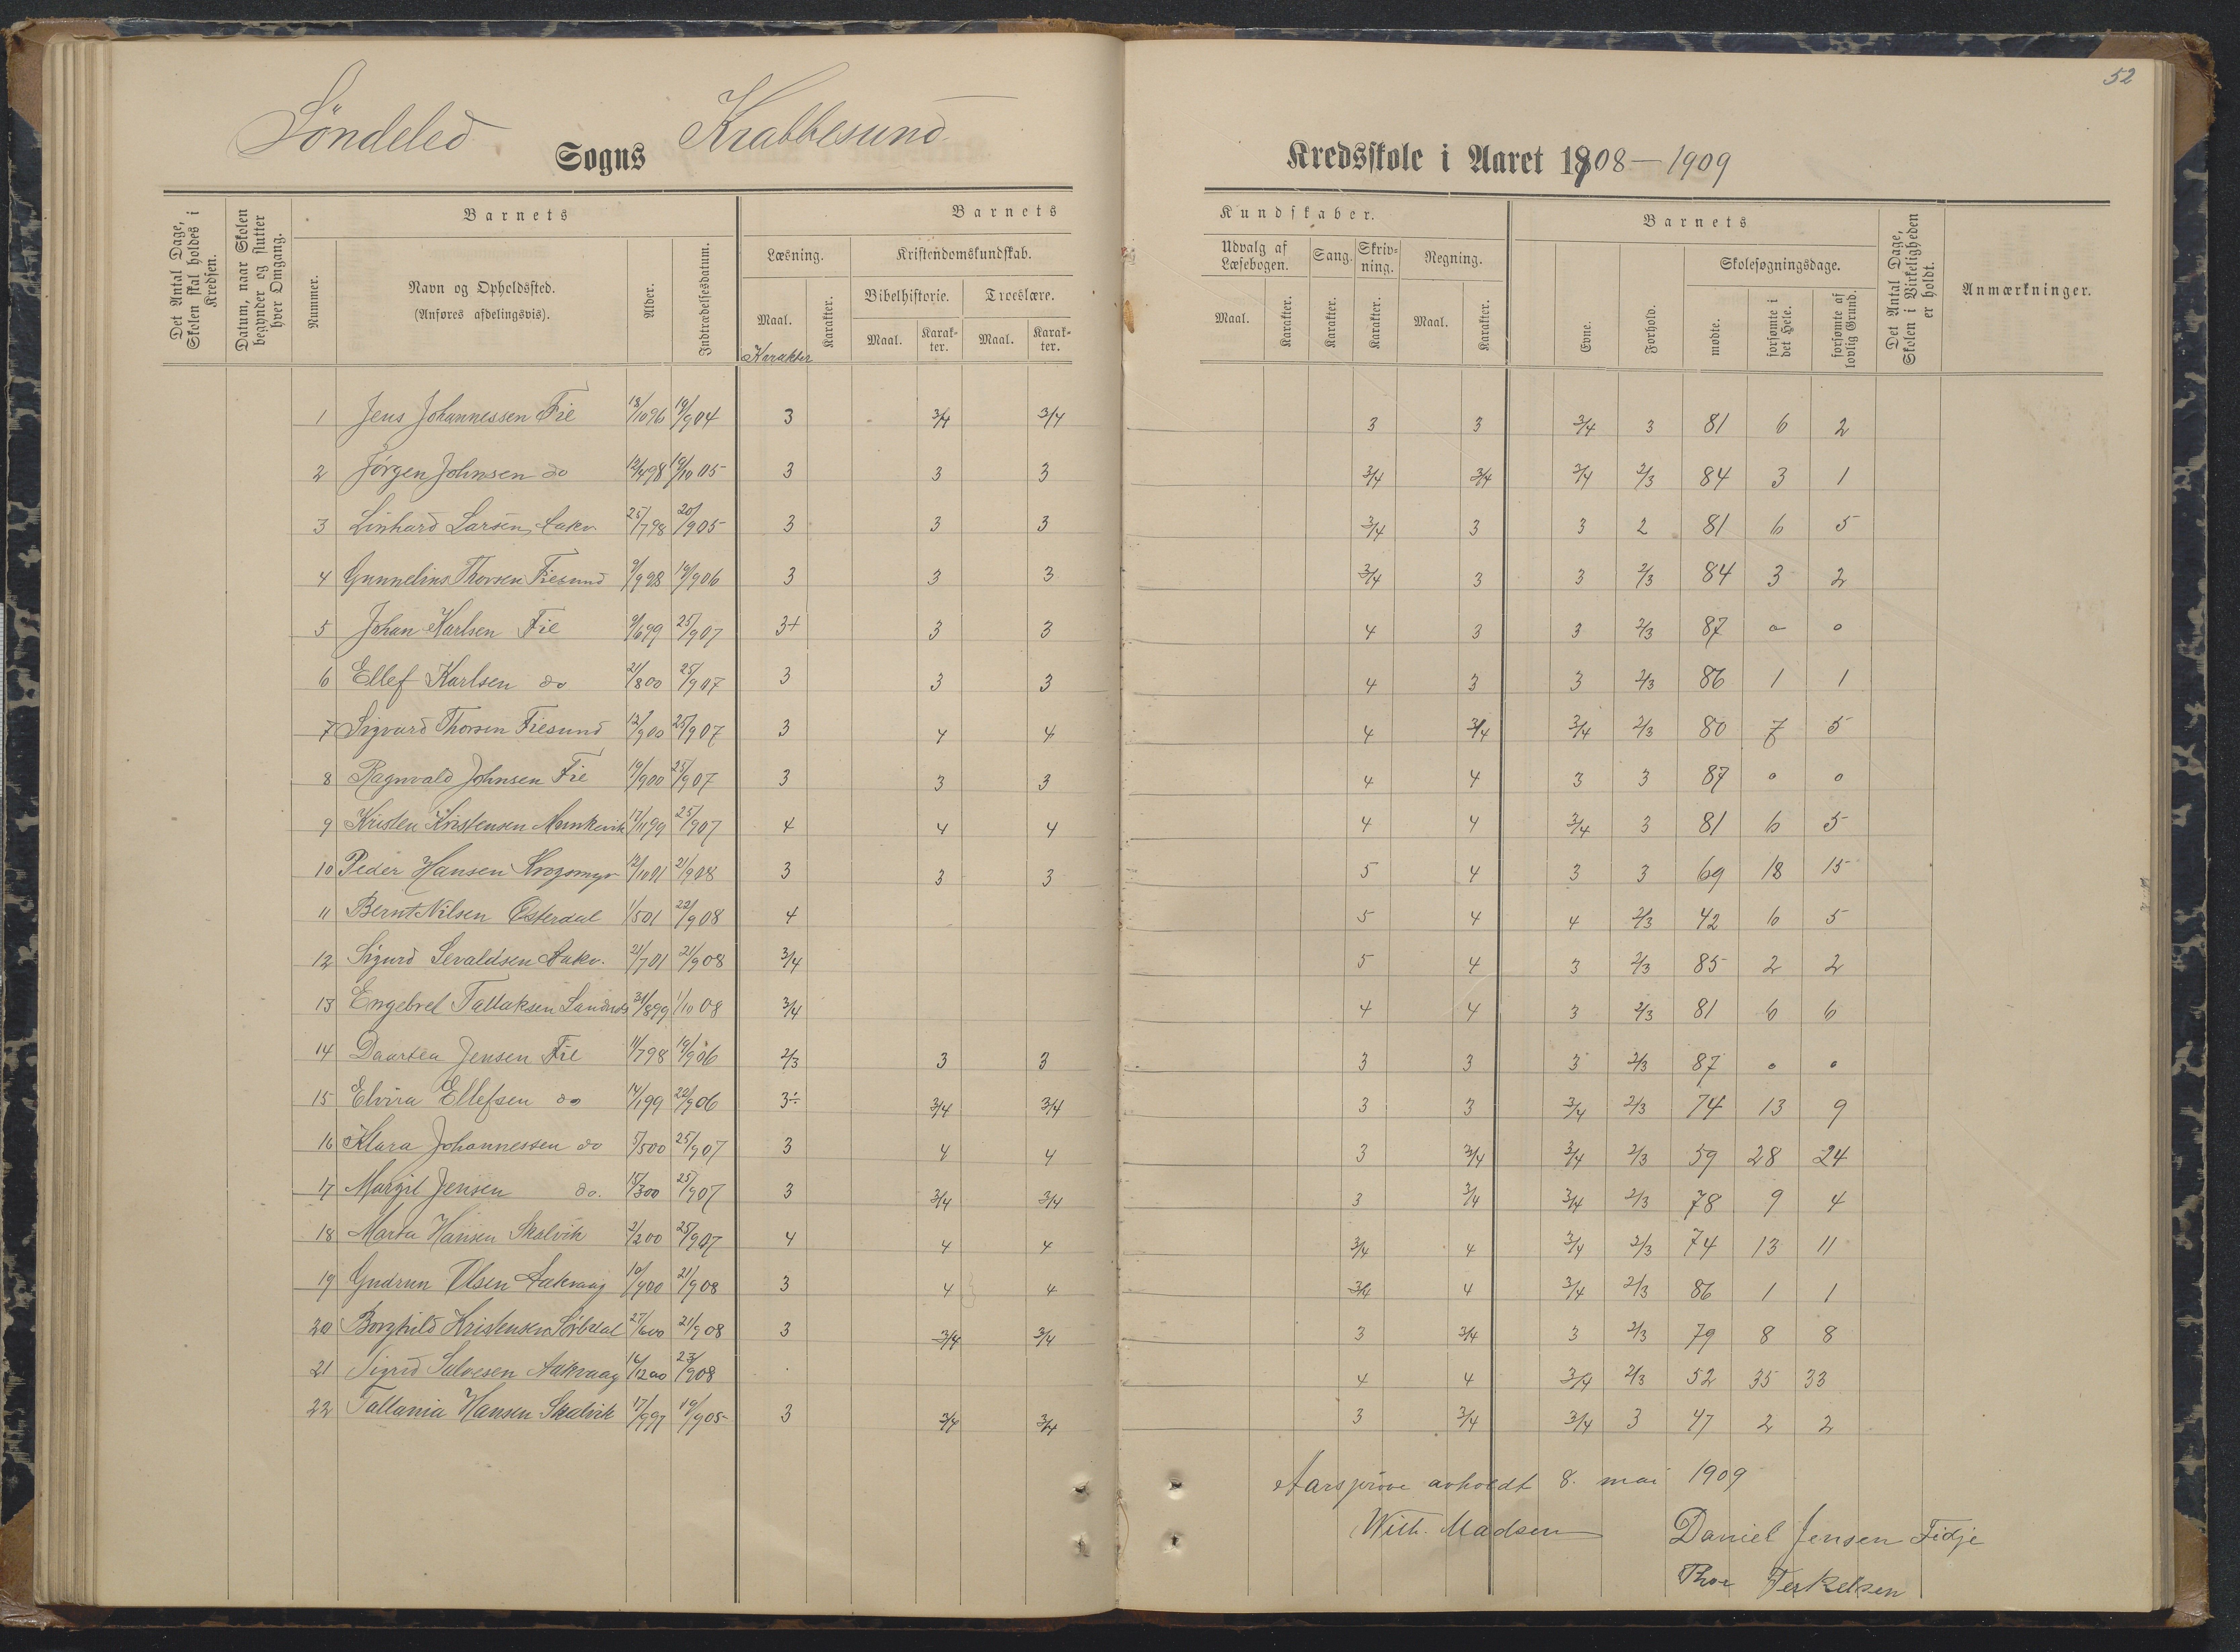 52
Söndeled Sogns Krabbesund
Kredsskole i Aaret 1908–1909
Det Antal Dage, Skolen skal holdes i Kredsen.
Datum, naar Skolen begynder og slutter hver Omgang.
Barnets
Nummer.
Navn og Opholdssted.
(Anføres afdelingsvis).
Alder.
Indtrædelsesdatum.
Barnets
Læsning.
Maal.
Karakter
Karakter.
Kristendomskundskab.
Bibelhistorie.
Troeslære.
Maal.
Karakter.
Maal.
Karakter.
Kundskaber.
Udvalg af Læsebogen.
Sang.
Skrivning.
Regning.
Maal.
Karakter.
Karakter.
Karakter.
Maal.
Karakter.
Barnets
Evne.
Forhold.
Skolesøgningsdage.
mødte.
forsømte i det Hele.
forsømte af lovlig Grund.
Det Antal Dage, Skolen i Virkeligheden er holdt.
Anmærkninger.
1 Jens Johannessen Fie 18/10 96 19/9 04 3 3/4 3/4 3 3 3/4 3 81 6 2
2 Jörgen Johnsen do 12/4 98 19/10 05 3 3 3 3/4 3/4 3/4 2/3 84 3 1
3 Linhard Larsen, Aakv. 25/7 98 20/9 05 3 3 3 3/4 3 3 2 81 6 5
4 Gunnelius Thorsen Fiesund 9/9 98 19/9 06 3 3 3 3/4 3 3 2/3 84 3 2
5 Johan Karlsen Fie 9/6 99 25/9 07 3+ 3 3 4 3 3 2/3 87 o o
6 Ellef Karlsen do 21/8 00 25/9 07 3 3 3 4 3 3 2/3 86 1 1
7 Sigvard Thorsen Fiesund 12/9 00 25/9 07 3 4 4 4 3/4 3/4 2/3 80 7 5
8 Ragnvald Johnsen Fie 19/9 00 25/9 07 3 3 3 4 4 3 3 87 o o
9 Kristen Kristensen Munkevik 17/11 99 25/9 07 4 4 4 4 4 3/4 3 81 6 5
10 Peder Hansen Krogsmyr 12/10 01 21/9 08 3 3 3 5 4 3 3 69 18 15
11 Bernt Nilsen Österdal 1/5 01 22/9 08 4 5 4 4 2/3 42 6 5
12 Sigurd Sevaldsen Aakv. 21/7 01 21/9 08 3/4 5 4 3 2/3 85 2 2
13 Engebret Tallaksen Sandnes 31/8 99 1/10 08 3/4 4 4 3 2/3 81 6 6
14 Daartea Jensen Fie 11/7 98 19/9 06 2/3 3 3 3 3 3 2/3 87 o o
15 Elvira Ellefsen do 14/1 99 22/9 06 3÷ 3/4 3/4 3 3 3/4 2/3 74 13 9
16 Klara Johannessen do 5/5 00 25/9 07 3 4 4 3 3/4 3/4 2/3 59 28 24
17 Margit Jensen do. 15/3 00 25/9 07 3 3/4 3/4 3 3/4 3/4 2/3 78 9 4
18 Marta Hansen Skalvik 2/2 00 25/9 07 4 4 4 3/4 4 3/4 2/3 74 13 11
19 Gudrun Olsen Aakvaag 10/9 00 21/9 08 3 4 4 3/4 4 3/4 2/3 86 1 1
20 Borghild Kristensen Sörbdal 27/6 00 21/9 08 3 3/4 3/4 3 3/4 3 2/3 79 8 8
21 Sigrid Salvesen Aakvaag 16/12 00 23/9 08 4 4 3/4 2/3 52 35 33
22 Tallania Hansen Skalvik 17/9 97 19/9 05 3 3/4 3/4 3 3/4 3/4 3 47 2 2
Aarspröve avholdt 8. mai 1909
Wilh. Madsen Daniel Jensen Fidje
Thor Terkelsen